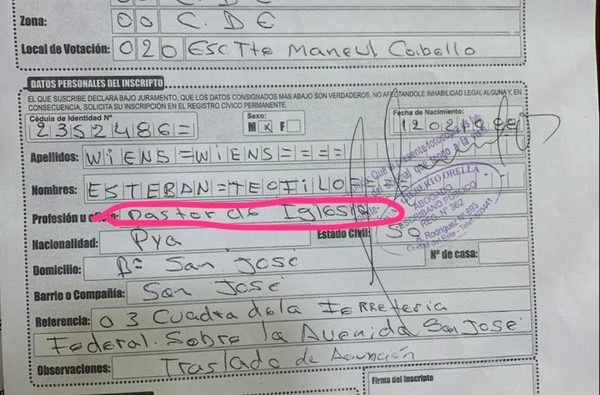 00 C.D.E
Zona: 00 C.D.E
Local de Votación: 020 Esctte Maneul Cabello
DATOS PERSONALES DEL INSCRIPTO
EL QUE SUSCRIBE DECLARA BAJO JURAMENTO, QUE LOS DATOS CONSIGNADOS MAS ABAJO SON VERDADEROS, NO AFECTANDOLE INHABILIDAD LEGAL ALGUNA Y, EN
CONSECUENCIA, SOLICITA SU INSCRIPCIÓN EN EL REGISTRO CÍVICO PERMANENTE.
Cédula de Identidad Nº Sexo: Fecha de Nacimiento:
2352486= M x F
Apellidos: WIENS=WIENS====
Nombres: ESTEBAN=TEOFILO
Profesión u oficio: Pastor de Iglesia
Nacionalidad: Pya Estado Civil: So
Domicilio: Bº San José Nº de casa:
Barrio o Compañía: San José
Referencia: a 3 Cuadra de la Ferreteria
Federal. Sobre la Avenida San Jose
Observaciones: Traslado de Asunción
Firma del Inscripto
ABOGADO
ESCRIBANO PUBLICO
REG. Nº 362